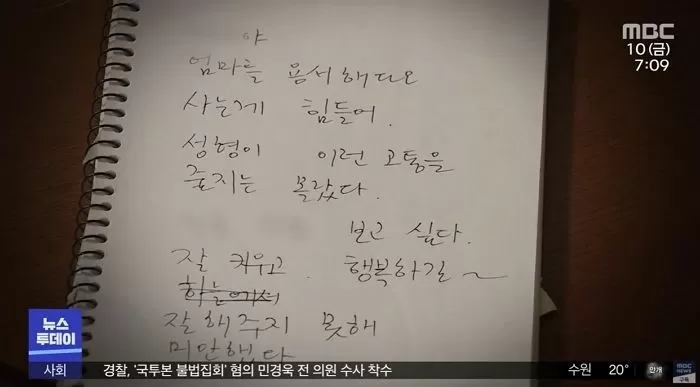 MBC
10(금)
7:09
야
엄마를 용서해다오
사는게 힘들어.
성형이 이런 고통을
줄지는 몰랐다.
보고 싶다.
잘 키우고. 행복하길~
하늘에서
잘해주지 못해
미안했다
뉴스
투데이
사회 경찰, '국투본 불법집회' 혐의 민경욱 전 의원 수사 착수 수원 20° 만개
MBC NEWS
구독